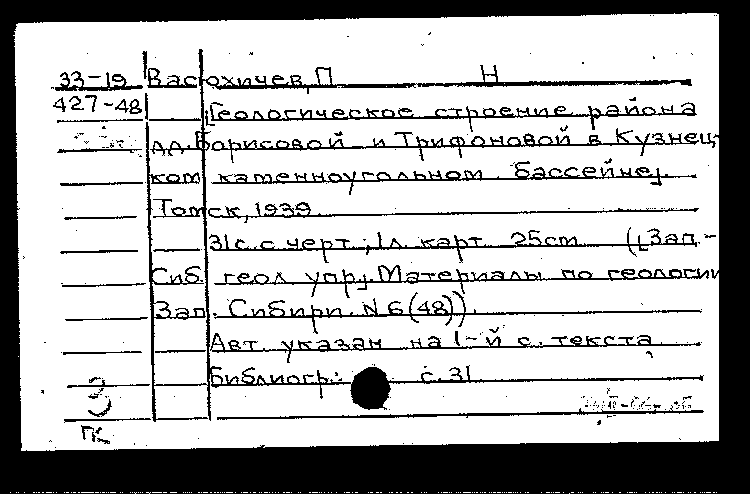 33-19 Васюхичев, П Н
427-48 [Геологическое строение района
дд. Борисовой и Трифоновой в Кузнец-
ком каменноугольном бассейне].
Томск, 1939.
31с. с черт.; 1л. карт 25cm ([Зап.-
Сиб. геол упр]. Материалы по геологии
Зап. Сибири. N6(48)).
Авт. указан на 1-й с. текста
Библиогр.: с. 31
З
ПК